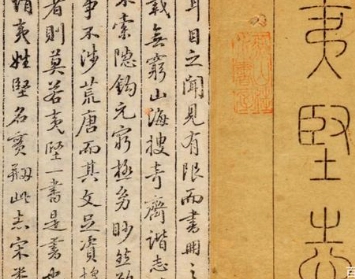 夷堅志
耳目之聞見有限而書冊之
載無窮山海搜奇齊諧志
不索隱鉤元窮極多眇然
事不涉荒唐而其文足資
者則莫若夷堅一書是書
謂夷姓堅名實
此志宋